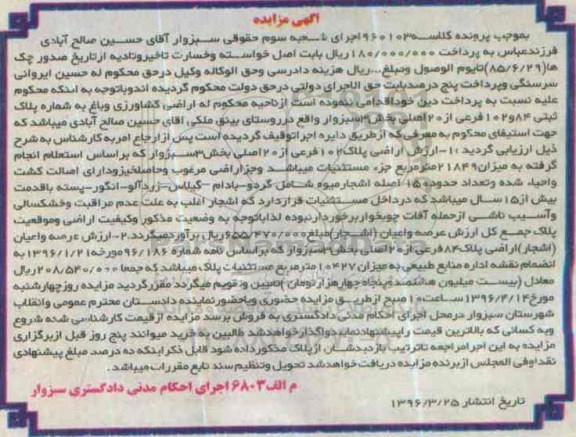 آگهی مزایده
بموجب پرونده کلاسه ۹۶۰۱۰۳ اجرای شعبه سوم حقوقی سبزوار آقای حسین صالح آبادی
فرزند عباس به پرداخت ۱۸۰/۰۰۰/۰۰۰ ریال بابت اصل خواسته وخسارت تاخیر وتادیه ازتاریخ صدور چک
ها (۸۵/۶/۲۹) تایوم الوصول ومبلغ...ریال هزینه دادرسی وحق الوکاله وکیل درحق محکوم له حسین ایروانی
سرسنگی وپرداخت پنج درصد بابت حق الاجرای دولتی درحق دولت محکوم گردیده اند وباتوجه به اینکه محکوم
علیه نسبت به پرداخت دین خود اقدامی ننموده است ازناحیه محکوم له اراضی کشاورزی وباغ به شماره پلاک
ثبتی ۸۴ و ۱۰۲ فرعی از ۲۰ اصلی بخش ۳ سبزوار واقع در روستای بینق ملکی اقای حسین صالح آبادی میباشد که
جهت استیفای محکوم به معرفی که ازطریق دایره اجرا توقیف گردیده است پس از ارجاع امر به کارشناس به شرح
ذیل ارزیابی گردید :۱-ارزش اراضی پلاک ۱۰۲ فرعی از ۲۰ اصلی بخش ۳ سبزوار که براساس استعلام انجام
گرفته به میزان ۲۱۸۴۹ مترمربع جزء مستثنیات میباشد وجزاراضی مرغوب وحاصلخیز ودارای اصالت کشت
واحیاء شده وتعداد حدود ۱۵۰ اصله اشجارمیوه شامل گردو-بادام -گیلاس-زردآلو-انگور-پسته باقدمت
بیش از ۱۵ سال میباشد که درداخل مستثنیات قراردارد که اشجار اغلب به علت عدم مراقبت وخشکسالی
وآسیب ناشی ازحمله آفات چوبخوار برخوردار نبوده لذا باتوجه به وضعیت مذکور وکیفیت اراضی وموقعیت
پلاک جمع کل ارزش عرصه واعیان (اشجار) مبلغ ۶۵۵/۴۷۰/۰۰۰ ریال برآورد میگردد.۲-ارزش عرصه واعیان
(اشجار) اراضی پلاک ۸۴ فرعی از ۲۰ اصلی بخش ۳ سبزوار که براساس نامه شماره ۹۶/۱۸۶ مورخه ۱۳۹۶/۱/۲۱ به
انضمام نقشه اداره منابع طبیعی به میزان ۱۰۴۲۷ مترمربع مستثنیات پلاک میباشد که جمعا ۲۰۸/۵۴۰/۰۰۰ ریال
معادل (بیست میلیون هشتصد وپنجاه چهارهزار تومان) تامین وتقویم میگردد مقرر گردید مزایده روز چهارشنبه
مورخ ۱۳۹۶/۴/۱۴ ساعت ۱۰ صبح ازطریق مزایده حضوری وباحضور نماینده دادستان محترم عمومی وانقلاب
شهرستان سبزوار درمحل اجرای احکام مدنی دادگستری به فروش برسد مزایده ازقیمت کارشناسی شده شروع
وبه کسانی که بالاترین قیمت را پیشنهاد نماید واگذار خواهدشد طالبین به خرید میتوانند پنج روز قبل از برگزاری
مزایده به این اجرا مراجعه تا ترتیب بازدیدشان ازپلاک مذکور داده شود قابل ذکر اینکه ده درصد مبلغ پیشنهادی
نقدا وفی المجلس از برنده مزایده دریافت خواهدشد تحویل وتنظیم سند تابع مقررات میباشد.
م الف ۶۸۰۳ اجرای احکام مدنی دادگستری سبزوار
تاریخ انتشار ۱۳۹۶/۳/۲۵